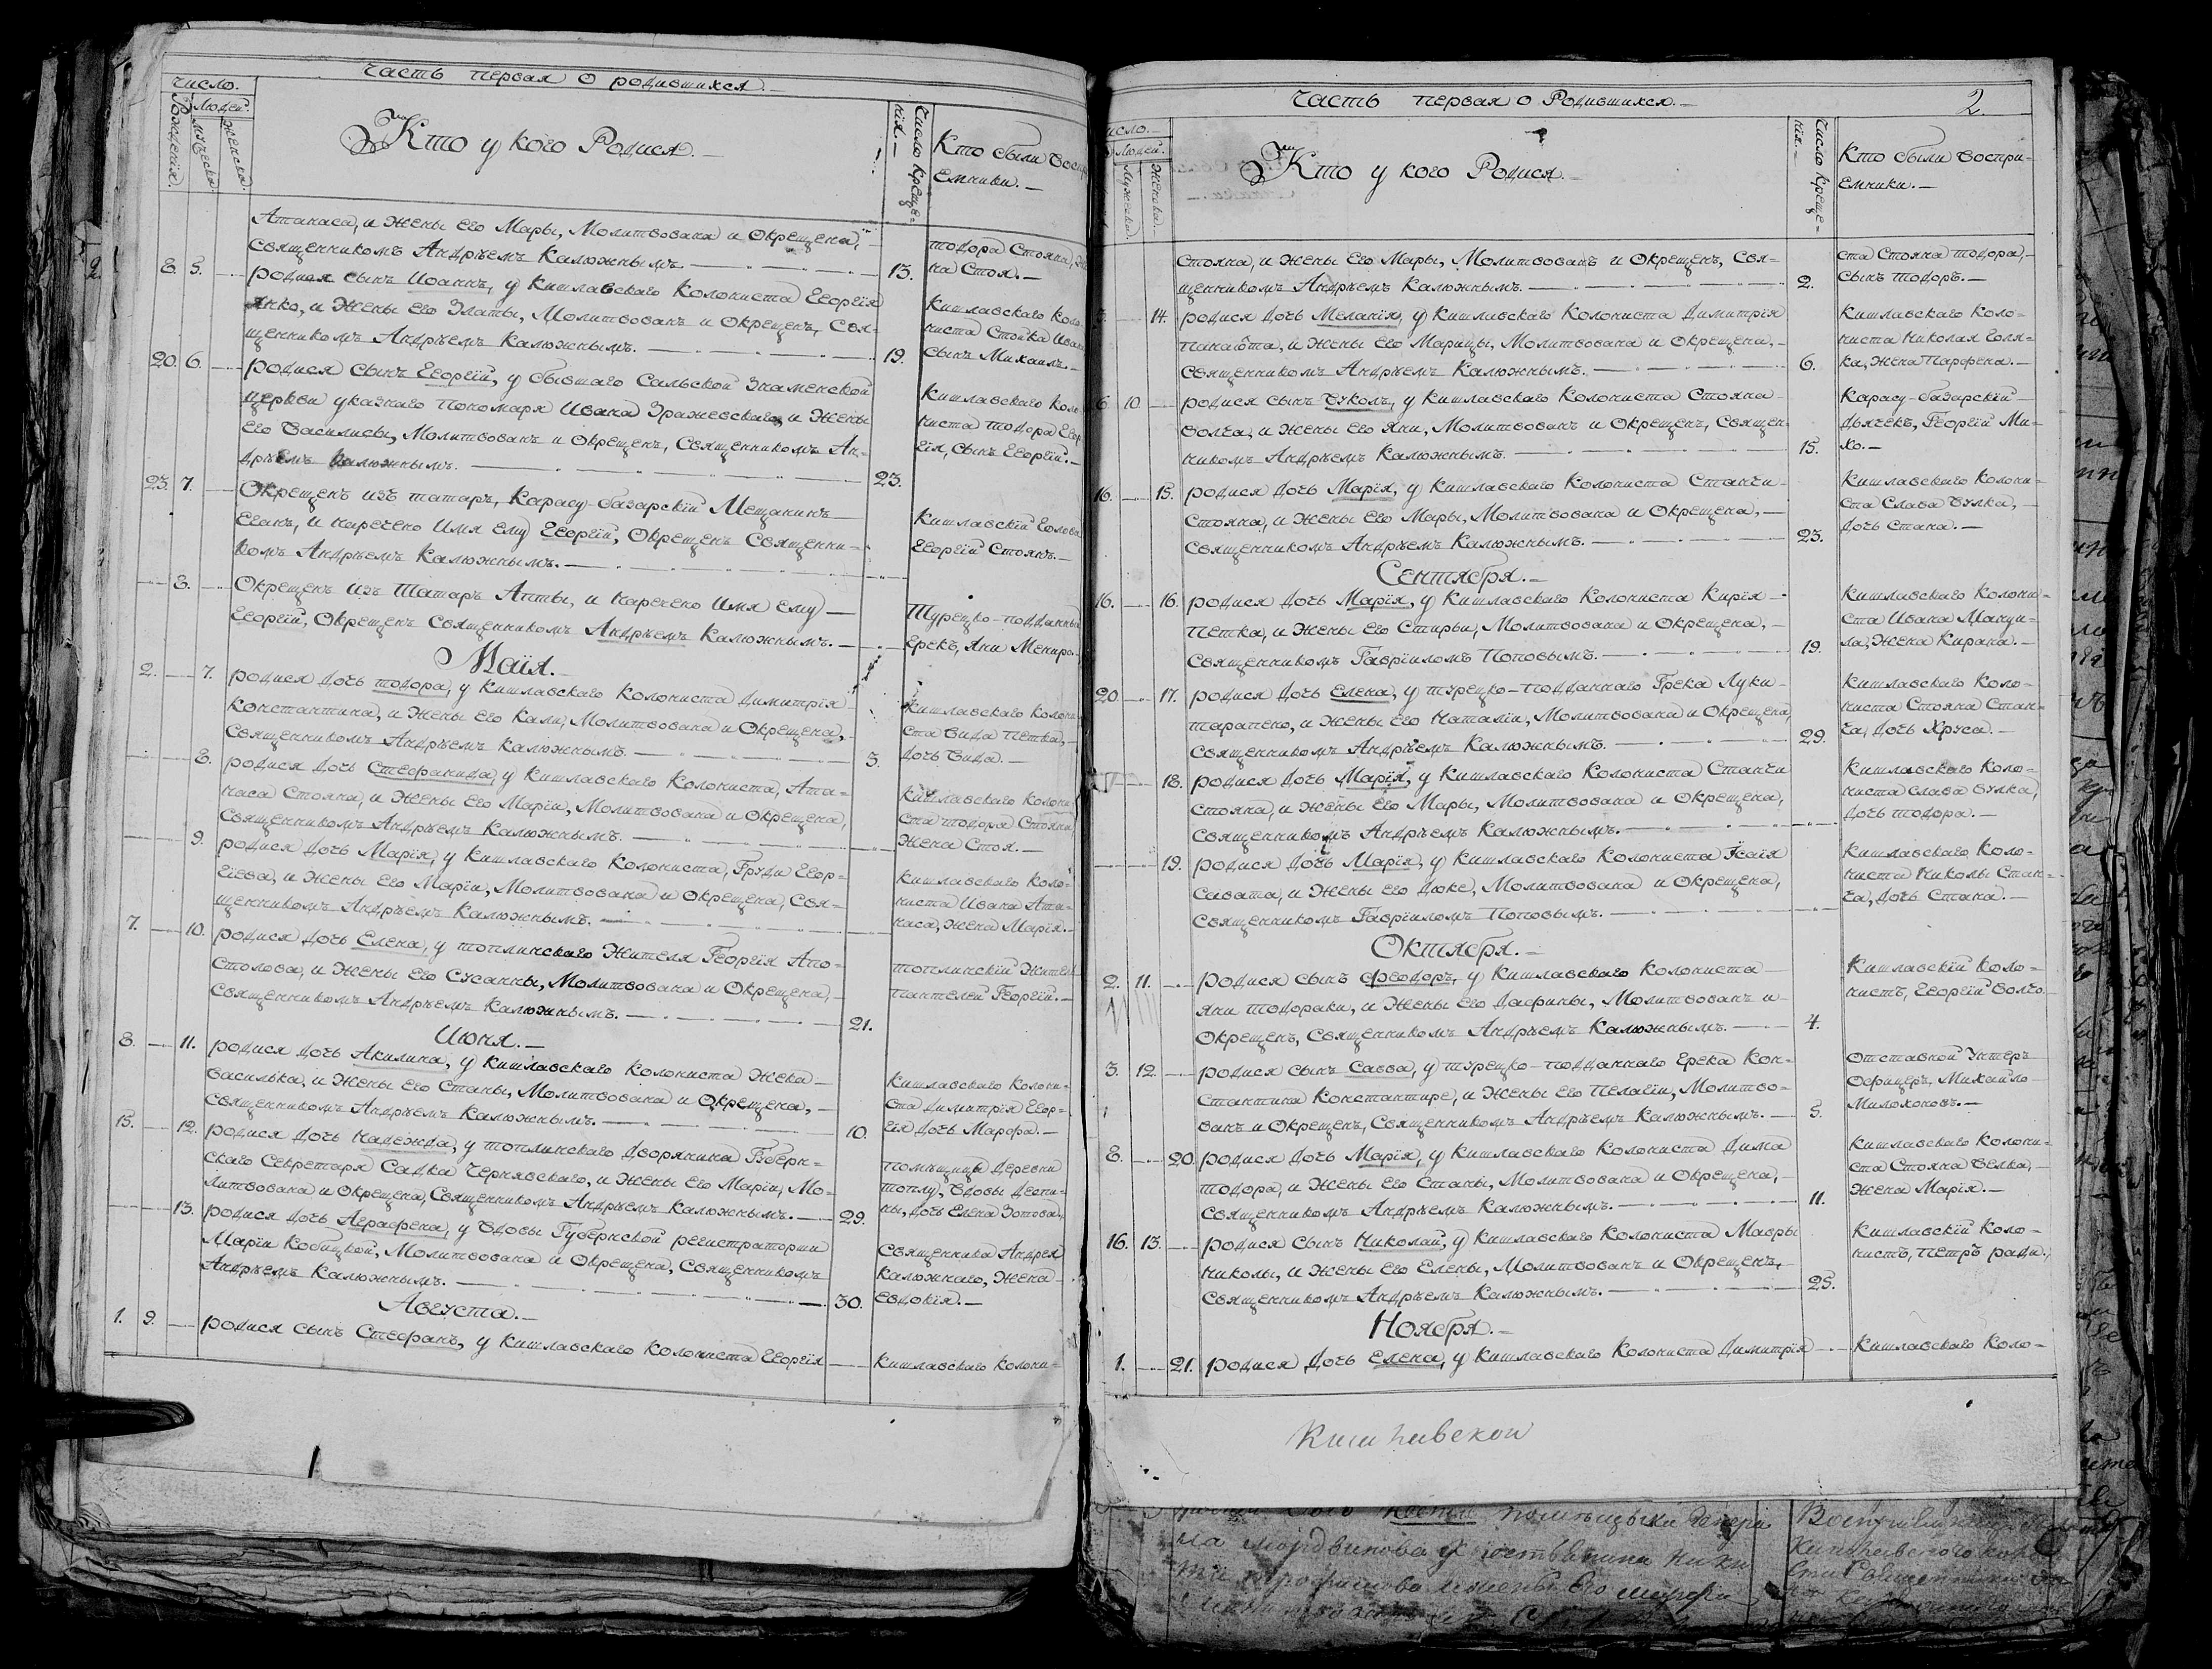 Часть первая О родившихся.
Число.
Рожденія.
Людей.
мужеска.
женска.
Кто у кого Родися.
Число креще=
нія.
Кто были воспр
емники.
Атанаса, и жены его Мары, Молитвована и окрещена,
священникомъ Андрѣемъ Калюжнымъ.
тодора Стояна,
на Стоя.
8. 5. родися сынъ Иоаннъ, у Кишлавскаго Колониста Георгія 13.
Янко, и жены его Златы, Молитвованъ и окрещенъ, свя=
щенникомъ Андрѣемъ Калюжнымъ. 19.
Кишлавскаго коло
ниста Стойка Иван
сынъ Михаилъ.
20. 6. родися сынъ Георгій, у бывшаго Сальской Знаменской
церкви указнаго пономаря Ивана Зражевскаго, и жены
его Василисы, Молитвованъ и окрещенъ, священникомъ Ан=
дрѣемъ Калюжнымъ. 23.
Кишлавскаго коло
ниста тодора Геор
гія, сынъ Георгій.
23. 7. Окрещенъ изъ татаръ, Карасу-базарскій Мещанинъ
и наречено имя ему Георгій, окрещенъ священни=
комъ Андрѣемъ Калюжнымъ.
Кишлавскій Голова
Георгій Стоянъ.
8. Окрещенъ изъ татаръ Апты, и наречено имя ему
Георгій, окрещенъ священникомъ Андрѣемъ Калюжнымъ.
Турецко-подданный
Грекъ, Яни
Маія.
2. 7. родися дочь тодора, у Кишлавскаго Колониста Димитрія
Константина, и жены его Кали, Молитвована и окрещена,
священникомъ Андрѣемъ Калюжнымъ. 3.
Кишлавскаго колони
ста Вида Петка,
дочь Вида.
8. родися дочь Стефанида, у Кишлавскаго Колониста, Ата=
наса Стояна, и жены его Маріи, Молитвована и окрещена,
священникомъ Андрѣемъ Калюжнымъ.
Кишлавскаго колони
ста тодора Стояна
жена Стоя.
9. родися дочь Марія, у Кишлавскаго Колониста, Груди Геор=
гіева, и жены его Маріи, Молитвована и окрещена, свя=
щенникомъ Андрѣемъ Калюжнымъ.
Кишлавскаго коло=
ниста Ивана Ата=
наса, жена Марія.
7. 10. родися дочь Елена, у топлинскаго жителя Георгія Апо=
столова, и жены его Сусанны, Молитвована и окрещена,
священникомъ Андрѣемъ Калюжнымъ. 21.
топлинскій жител
Пантелей Георгій.
Июня.
8. 11. родися дочь Акилина, у Кишлавскаго Колониста Жека
Василька, и жены его Станы, Молитвована и окрещена,
священникомъ Андрѣемъ Калюжнымъ. 10.
Кишлавскаго колони=
ста Димитрія Геор=
гія дочь Марфа.
15. 12. родися дочь Надежда, у топлинскаго дворянина Губерн=
скаго Секретаря Садка Чернявскаго, и жены его Маріи, Мо=
литвована и окрещена, священникомъ Андрѣемъ Калюжнымъ. 29.
помѣщицы деревни
топлу, вдовы Деспи=
ны, дочь Елена Зотова.
13. родися дочь Аграфена, у вдовы Губернской регистраторши
Маріи Кобицкой, Молитвована и окрещена, священникомъ
Андрѣемъ Калюжнымъ. 30.
священника Андрея
Калюжнаго, жена
Евдокія.
Августа.
1. 9. родися сынъ Стефанъ, у Кишлавскаго Колониста Георгія
Кишлавскаго колони=
Часть первая о Родившихся.
2.
исло.
Людей.
Мужеска.
женска.
Кто у кого Родися.
Число креще=
нія.
Кто были воспри=
емники.
Стояна, и жены его Мары, Молитвованъ и окрещенъ, свя=
щенникомъ Андрѣемъ Калюжнымъ. 2.
ста Стояна тодора,
сынъ тодоръ.
14. родися дочь Меланія, у Кишлавскаго Колониста Димитрія
Панаіота, и жены его Марицы, Молитвована и окрещена,
священникомъ Андрѣемъ Калюжнымъ. 6.
Кишлавскаго коло=
ниста Николая Голя=
ка, жена Парфена.
6. 10. родися сынъ Вуколъ, у Кишлавскаго Колониста Стояна
Волча, и жены его Яни, Молитвованъ и окрещенъ, священ
никомъ Андрѣемъ Калюжнымъ. 15.
Карасу-базарскій
дьячекъ, Георгій Ми=
хо.
16. 15. родися дочь Марія, у Кишлавскаго Колониста Станчи
Стояна, и жены его Мары, Молитвована и окрещена,
священникомъ Андрѣемъ Калюжнымъ. 23.
Кишлавскаго колони=
ста Слава Вулка,
дочь Стана.
Сентября.
16. 16. родися дочь Марія, у Кишлавскаго Колониста Кирія
Петка, и жены его Стирьи, Молитвована и окрещена,
священникомъ Гавріиломъ Поповымъ. 19.
Кишлавскаго колони=
ста Ивана Манци=
ла, жена Кирана.
20. 17. родися дочь Елена, у турецко-подданнаго Грека Луки
тарапено, и жены его Наталіи, Молитвована и окрещена,
священникомъ Андрѣемъ Калюжнымъ. 29.
Кишлавскаго коло=
ниста Стояна Стан=
ча, дочь Хруса.
18. родися дочь Марія, у Кишлавскаго Колониста Станчи
Стояна, и жены его Мары, Молитвована и окрещена,
священникомъ Андрѣемъ Калюжнымъ.
Кишлавскаго коло=
ниста Слава Вулка,
дочь тодора.
19. родися дочь Марія, у Кишлавскаго Колониста Ісаія
Савата, и жены его Дюке, Молитвована и окрещена,
священникомъ Гавріиломъ Поповымъ.
Кишлавскаго коло=
ниста Николы Стан=
ча, дочь Стана.
Октября.
2. 11. родися сынъ Феодоръ, у Кишлавскаго Колониста
Яни тодораки, и жены его Дафины, Молитвованъ и
окрещенъ, священникомъ Андрѣемъ Калюжнымъ. 4.
Кишлавскій коло=
нистъ, Георгій Волчо.
3. 12. родися сынъ Савва, у турецко-подданнаго Грека Кон=
стантина Константире, и жены его Пелагіи, Молитво=
ванъ и окрещенъ, священникомъ Андрѣемъ Калюжнымъ. 5.
Отставной Унтеръ
Офицеръ, Михайло
Милохоновъ.
8. 20. родися дочь Марія, у Кишлавскаго Колониста Дима
тодора, и жены его Станы, Молитвована и окрещена,
священникомъ Андрѣемъ Калюжнымъ. 11.
Кишлавскаго колони=
ста Стояна Велка,
жена Марія.
16. 13. родися сынъ Николай, у Кишлавскаго Колониста Мавры
Николы, и жены его Елены, Молитвованъ и окрещенъ,
священникомъ Андрѣемъ Калюжнымъ. 25.
Кишлавскій коло=
нистъ, Петръ ради.
Ноября.
1. 21. родися дочь Елена, у Кишлавскаго Колониста Димитрія
Кишлавскаго коло=
Кишлавской